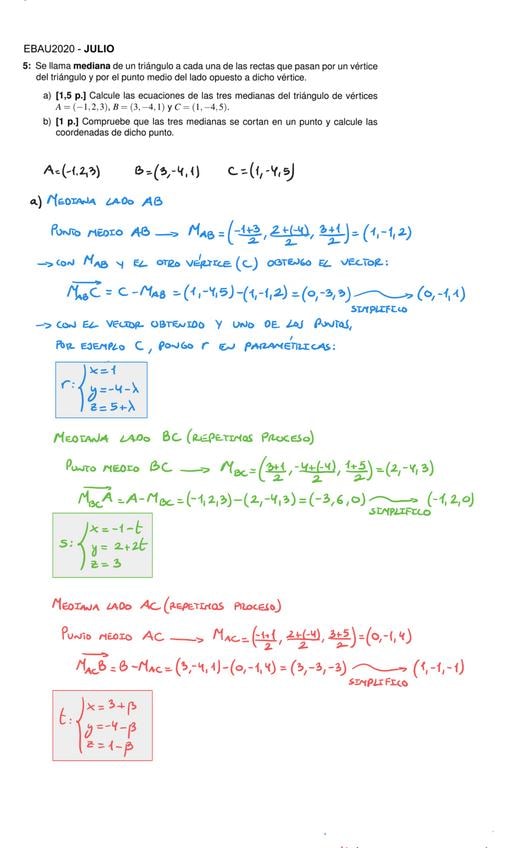 EBAU2020 - JULIO
5: Se llama mediana de un triángulo a cada una de las rectas que pasan por un vértice
del triángulo y por el punto medio del lado opuesto a dicho vértice.
a) [1,5 p.] Calcule las ecuaciones de las tres medianas del triángulo de vértices
A = (−1,2,3), B = (3,−4,1) y C = (1,−4,5).
b) [1 p.] Compruebe que las tres medianas se cortan en un punto y calcule las
coordenadas de dicho punto.
A=(-1,2,3) B=(3,-4,1) C=(1,-4,5)
a) MEDIANA LADO AB
PUNTO MEDIO AB → M_AB = (-1+3/2, 2+(-4)/2, 3+1/2) = (1,-1,2)
→ CON M_AB Y EL OTRO VÉRTICE (C) OBTENGO EL VECTOR:
M_ABC = C - M_AB = (1,-4,5)-(1,-1,2) = (0,-3,3) → (0,-1,1)
SIMPLIFICO
→ CON EL VECTOR OBTENIDO Y UNO DE LOS PUNTOS,
POR EJEMPLO C, PONGO r EN PARAMÉTRICAS:
r: { x=1
y=-4-λ
z=5+λ
MEDIANA LADO BC (REPETIMOS PROCESO)
PUNTO MEDIO BC → M_BC = (3+1/2, -4+(-4)/2, 1+5/2) = (2,-4,3)
M_BCA = A - M_BC = (-1,2,3)-(2,-4,3) = (-3,6,0) → (-1,2,0)
SIMPLIFICO
s: { x=-1-t
y=2+2t
z=3
MEDIANA LADO AC (REPETIMOS PROCESO)
PUNTO MEDIO AC → M_AC = (-1+1/2, 2+(-4)/2, 3+5/2) = (0,-1,4)
M_ACB = B - M_AC = (3,-4,1)-(0,-1,4) = (3,-3,-3) → (1,-1,-1)
SIMPLIFICO
t: { x=3+β
y=-4-β
z=1-β